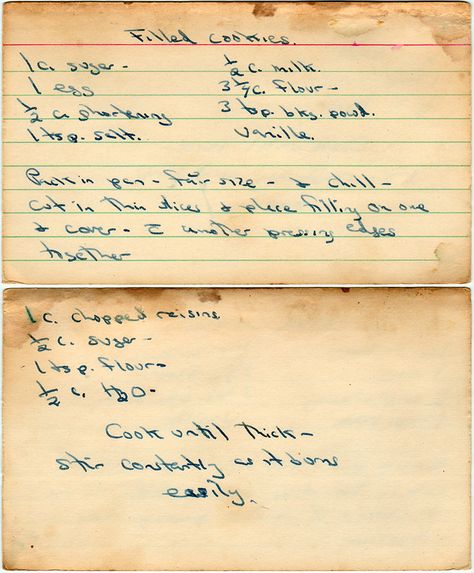 Filled Cookies.
1 c. sugar -
1 egg
½ c. shortening
1 tsp. salt.
½ c. milk.
3 ½ c. flour -
3 tsp. bkg. powd.
Vanilla.
Pack in pan - fair size - & chill -
cut in thin slices & place filling on one
& cover - c̄ another pressing edges
together
1 c. chopped raisins
½ c. sugar -
1 tsp. flour -
½ c. H2O -
Cook until thick -
stir constantly as it burns
easily.